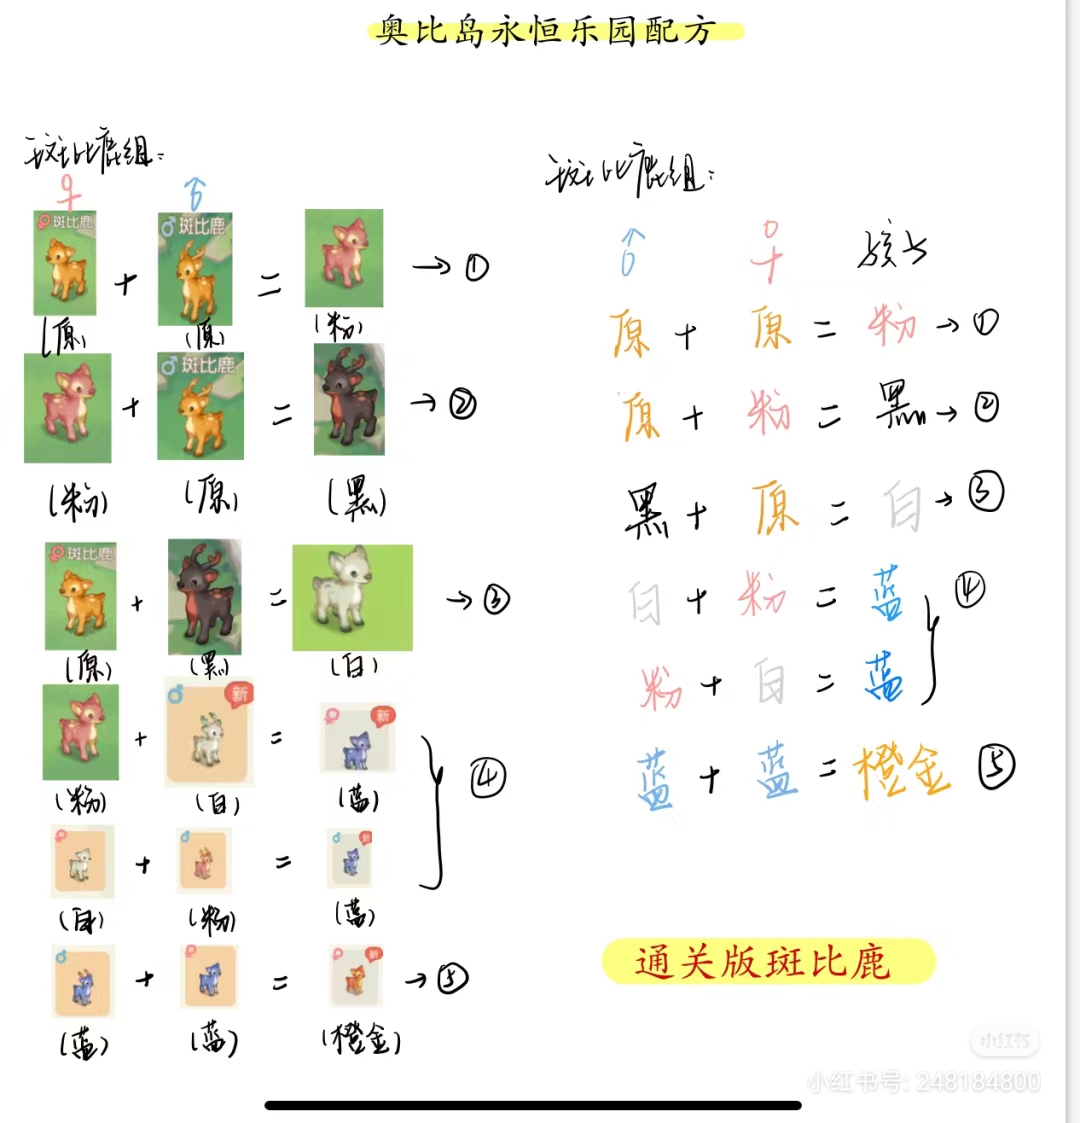 奥比岛永恒乐园配方
斑比鹿组:
♀ ♂
♀斑比鹿 + ♂斑比鹿 = → ①
(原) (原) (粉)
+ ♂斑比鹿 = → ②
(粉) (原) (黑)
♀斑比鹿 + = → ③
(原) (黑) (白)
+ ♂ 新 = ♀ 新
(粉) (白) (蓝)
④
♀ + ♂ = ♂ 新
(白) (粉) (蓝)
♂ + ♀ = 新 → ⑤
(蓝) (蓝) (橙金)
斑比鹿组:
♂ ♀ 孩子
原 + 原 = 粉 → ①
原 + 粉 = 黑 → ②
黑 + 原 = 白 → ③
白 + 粉 = 蓝
④
粉 + 白 = 蓝
蓝 + 蓝 = 橙金 ⑤
通关版斑比鹿
小红书
小红书号: 248184800